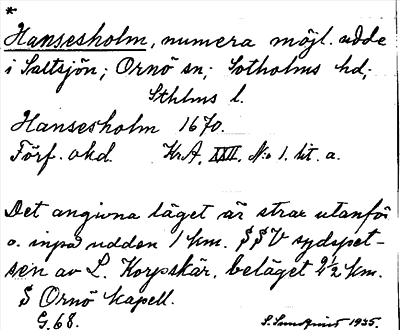 *
Hansesholm, numera möjl. udde
i Saltsjön; Ornö sn; Sotholms hd;
Sthlms l.
Hansesholm 1670.
Förf. okd. KrA, XXII, No 1. lit. a.
Det angivna läget är strax utanför
o. inpå udden 1 km. SSV sydspet-
sen av L. Korpskär, beläget 2½ km.
S Ornö kapell.
G. 68. 1935.